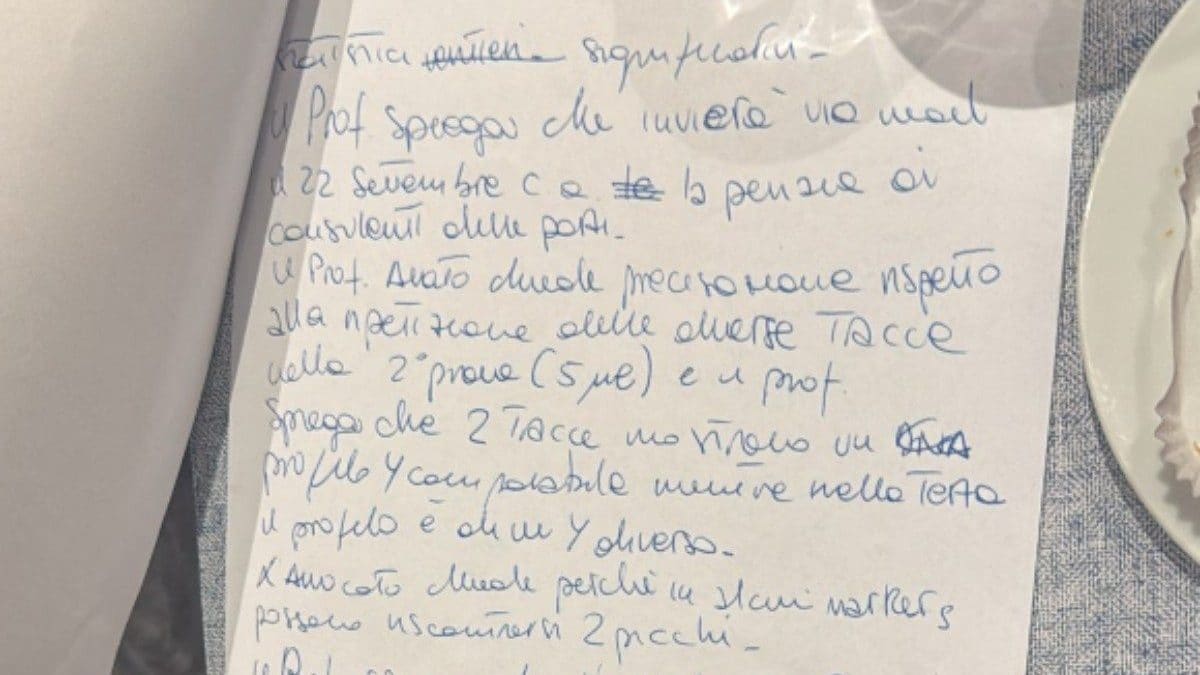 statistica significativi.
il Prof. spiega che invierà via mail
il 22 settembre c a la perizia ai
consulenti delle parti.
il Prof. chiede precisazione rispetto
alla ripetizione delle diverse TACCE
nella 2° prova (5 µl) e il prof.
spiega che 2 TACCE mostrano un
profilo Y comparabile mentre nella Terza
il profilo è di un Y diverso.
L'Avvocato chiede perché in alcuni markers
possono riscontrarsi 2 picchi.
il